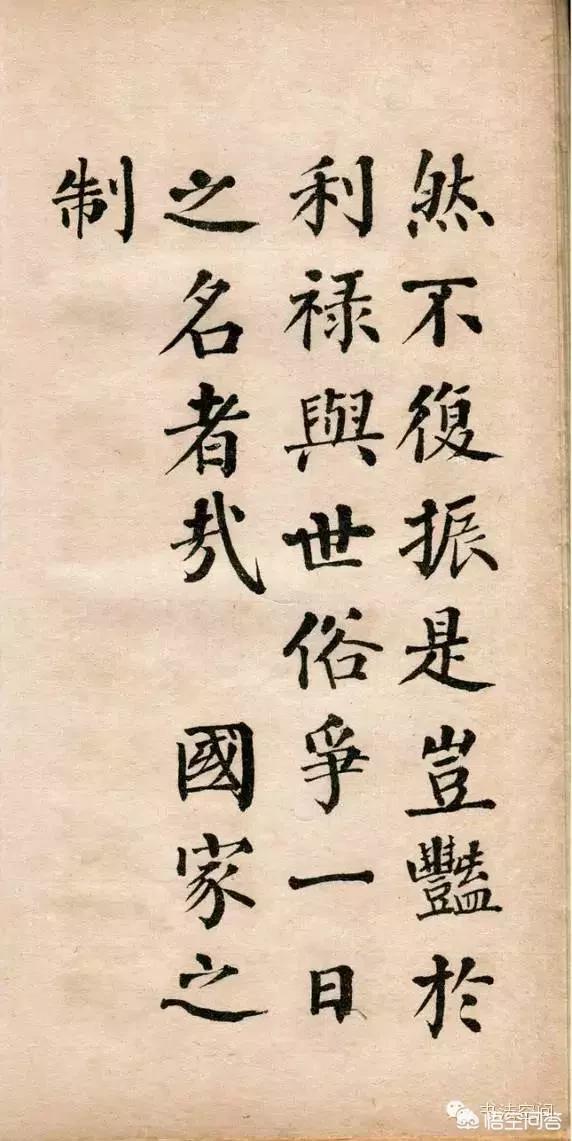 然不復振是豈豔於
利禄與世俗爭一日
之名者㢤 國家之
制
悟空问答